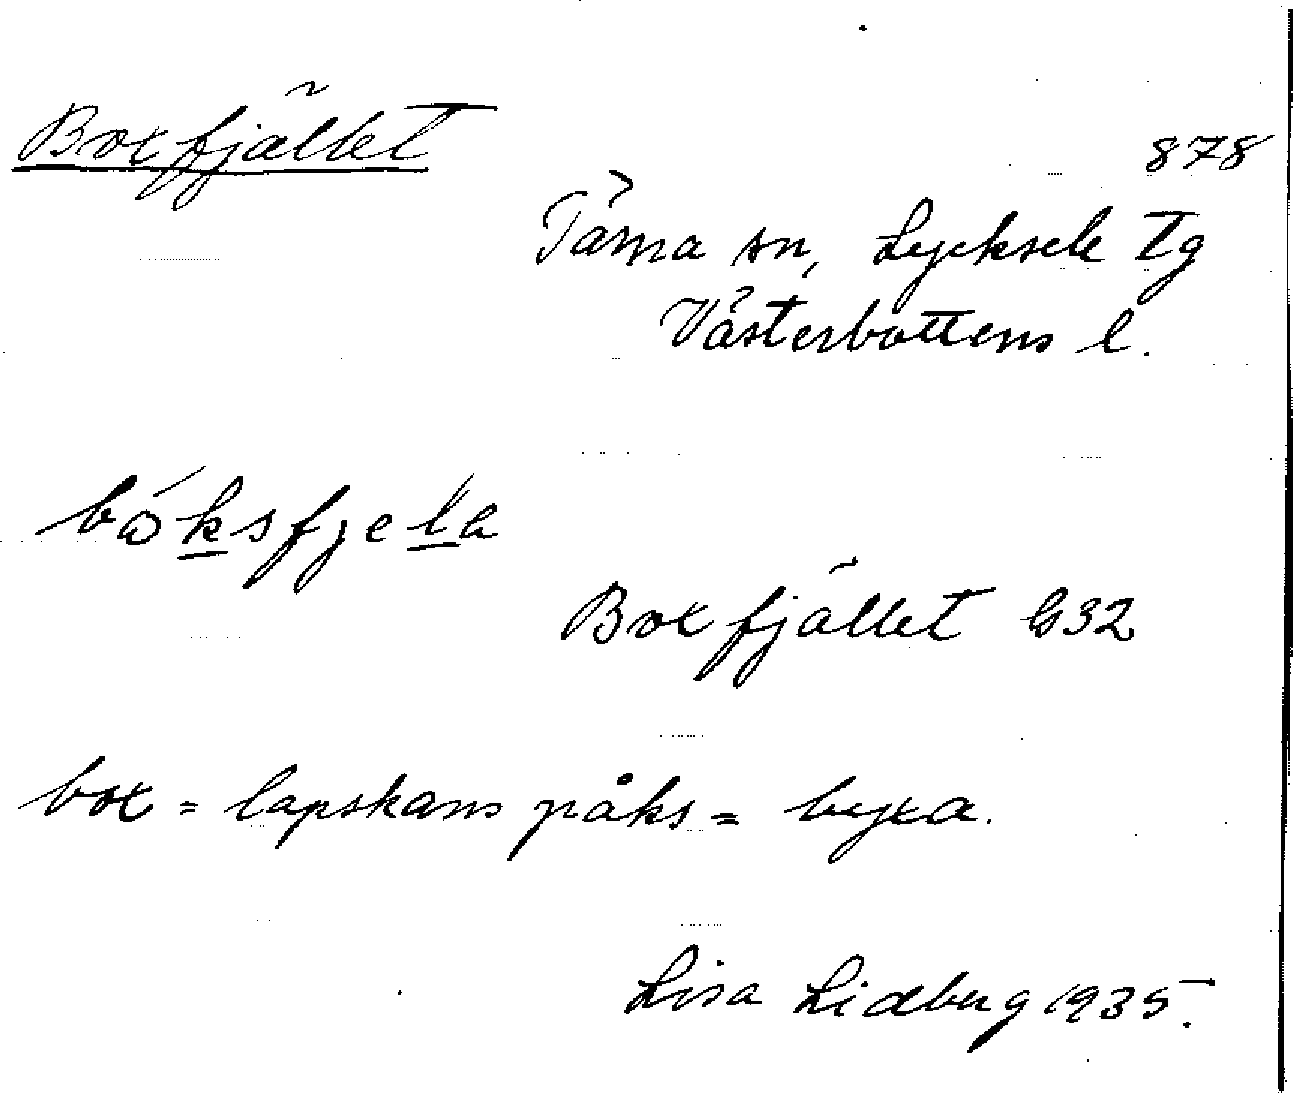 Boxfjället
878
Tärna sn, Lycksele Tg
Västerbottens l.
bóksfjela
Boxfjället G32
box = lapskans påks = byxa.
Lisa Lidberg 1935.